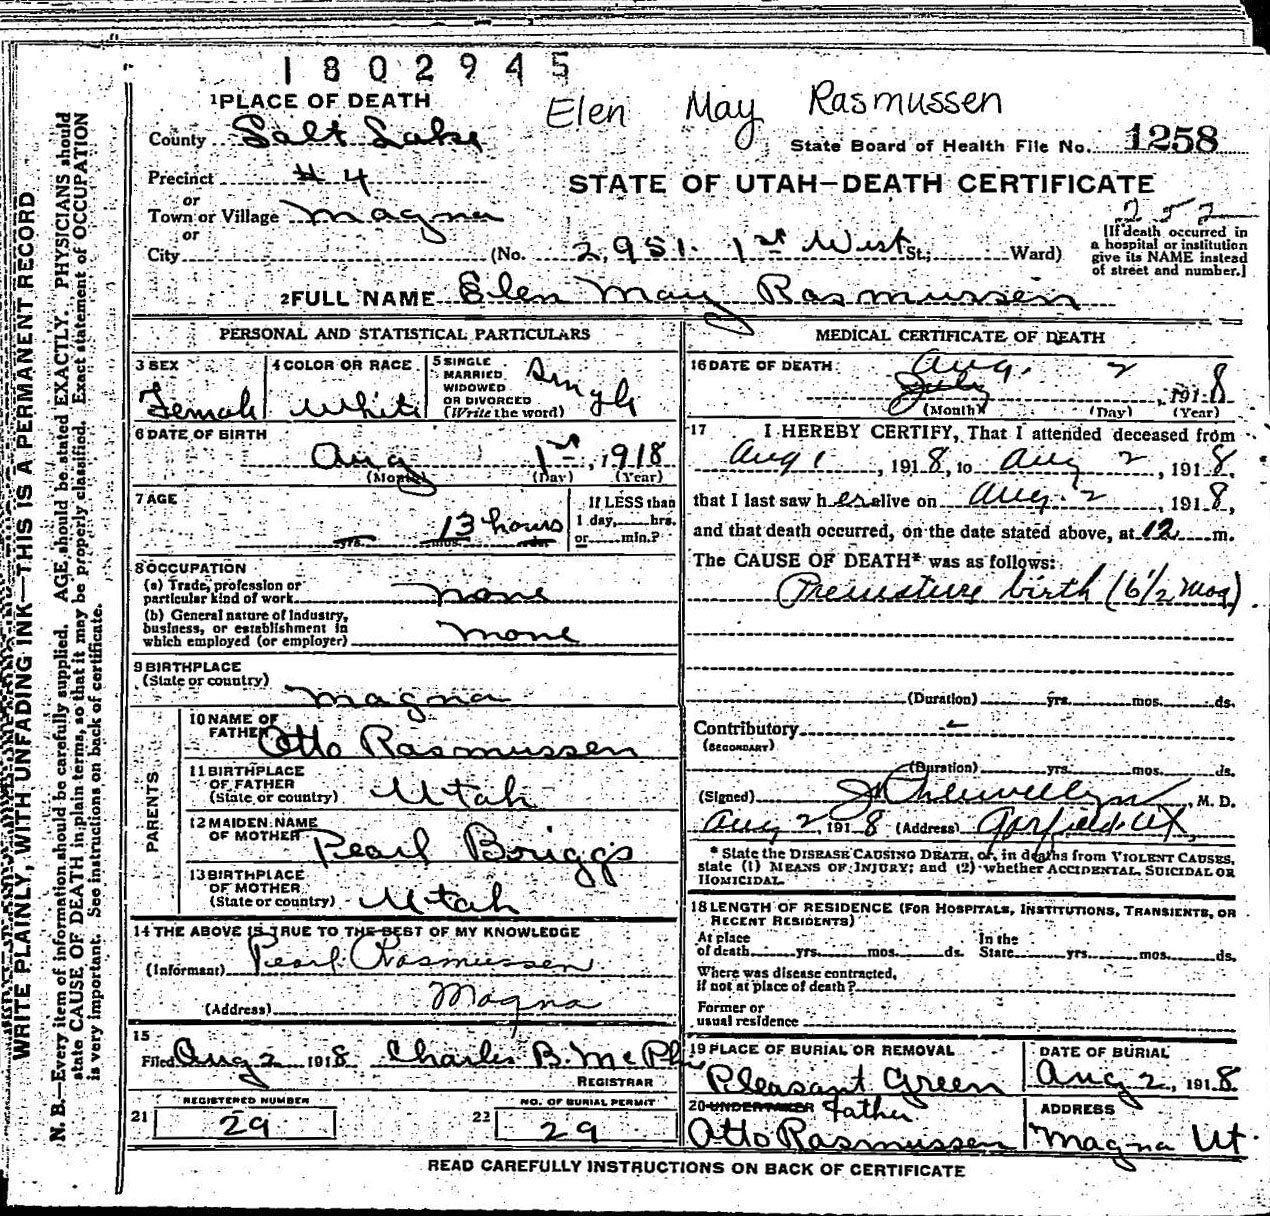 1802945
Elen May Rasmussen
1 PLACE OF DEATH
County Salt Lake
State Board of Health File No. 1258
Precinct #4
STATE OF UTAH—DEATH CERTIFICATE
or
Town or Village Magna
252
or
City (No. 2951. 1st West St.; Ward)
[If death occurred in
a hospital or institution
give its NAME instead
of street and number.]
2 FULL NAME Elen May Rasmussen
PERSONAL AND STATISTICAL PARTICULARS
3 SEX Female
4 COLOR OR RACE White
5 SINGLE
MARRIED
WIDOWED
OR DIVORCED
(Write the word) Single
6 DATE OF BIRTH
Aug 1st, 1918
(Month) (Day) (Year)
7 AGE
13 hours
yrs. mos. ds.
If LESS than
1 day, hrs.
or min.?
8 OCCUPATION
(a) Trade, profession or
particular kind of work none
(b) General nature of industry,
business, or establishment in
which employed (or employer) none
9 BIRTHPLACE
(State or country) Magna
PARENTS
10 NAME OF
FATHER Otto Rasmussen
11 BIRTHPLACE
OF FATHER
(State or country) Utah
12 MAIDEN NAME
OF MOTHER Pearl Briggs
13 BIRTHPLACE
OF MOTHER
(State or country) Utah
14 THE ABOVE IS TRUE TO THE BEST OF MY KNOWLEDGE
(Informant) Pearl Rasmussen
(Address) Magna
15
Filed Aug 2 1918 Charles B. McPh
REGISTRAR
21 REGISTERED NUMBER
29
22 NO. OF BURIAL PERMIT
29
MEDICAL CERTIFICATE OF DEATH
16 DATE OF DEATH Aug. 2
July , 1918
(Month) (Day) (Year)
17 I HEREBY CERTIFY, That I attended deceased from
Aug 1, 1918, to Aug 2, 1918,
that I last saw her alive on Aug. 2, 1918,
and that death occurred, on the date stated above, at 12 m.
The CAUSE OF DEATH* was as follows:
Premature birth (6 1/2 mos)
(Duration) yrs. mos. ds.
Contributory -
(SECONDARY)
(Duration) yrs. mos. ds.
(Signed) Llewellyn, M. D.
Aug 2, 1918 (Address) Garfield Ut,
* State the DISEASE CAUSING DEATH, or, in deaths from VIOLENT CAUSES,
state (1) MEANS OF INJURY; and (2) whether ACCIDENTAL, SUICIDAL OR
HOMICIDAL.
18 LENGTH OF RESIDENCE (FOR HOSPITALS, INSTITUTIONS, TRANSIENTS, OR
RECENT RESIDENTS)
At place
of death yrs. mos. ds.
In the
State yrs. mos. ds.
Where was disease contracted,
if not at place of death?
Former or
usual residence
19 PLACE OF BURIAL OR REMOVAL
Pleasant Green
DATE OF BURIAL
Aug 2, 1918
20 UNDERTAKER Father
Otto Rasmussen
ADDRESS
Magna Ut.
READ CAREFULLY INSTRUCTIONS ON BACK OF CERTIFICATE
WRITE PLAINLY, WITH UNFADING INK—THIS IS A PERMANENT RECORD
N. B.—Every item of information should be carefully supplied. AGE should be stated EXACTLY. PHYSICIANS should
state CAUSE OF DEATH in plain terms, so that it may be properly classified. Exact statement of OCCUPATION
is very important. See instructions on back of certificate.